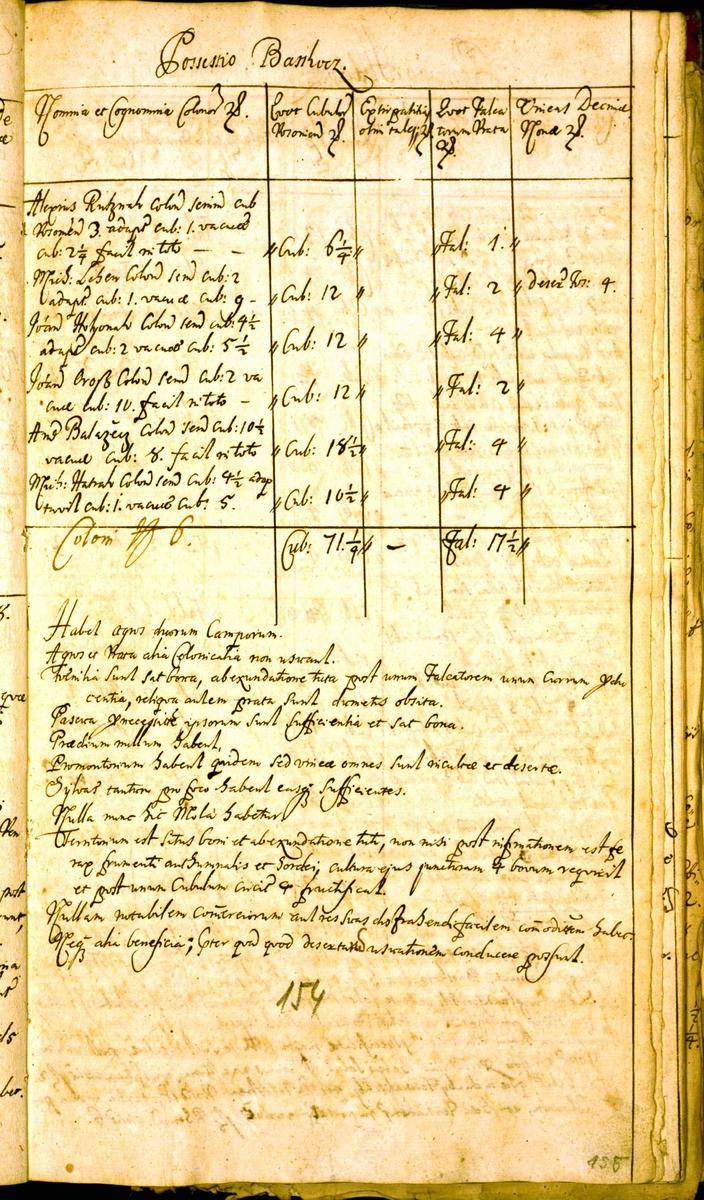 Possessio Basskocz.
Nomina et Cognomina Colonor
Quot Cubulor Posonien
Extirpatitiis
Quot Falcatorum Prata
Vineas Decimæ Nonæ
Alexius Colon semin cub
Posonien 3. adapt cub: 1. vacuas
cub: 2 1/4 facit in toto — — " Cub: 6 1/4 " " Fal: 1. "
Mich: Colon sem cub: 2
adapt cub: 1. vacuæ cub: 9 - " Cub: 12 " " Fal: 2 " Desert 4.
Joan Colon sem cub: 4 1/2
adapt cub: 2 vacuas cub: 5 1/2 " Cub: 12 " " Fal: 4 "
Joan Orosz Colon sem cub: 2 va
cuæ cub: 10. facit in toto — " Cub: 12 " " Fal: 2 "
And Colon sem cub: 10 1/2
vacuæ cub: 8. facit in toto " Cub: 18 1/2 " " Fal: 4 "
Mich: Colon sem cub: 4 1/2 adap
tavit cub: 1. vacuas cub: 5. " Cub: 10 1/2 " " Fal: 4 "
Coloni 6. Cub: 71. 1/4 " — Fal: 17 1/2 "
Habet agros duorum Camporum.
Agros et Prata alia Colonicalia non usuant.
Fœnilia sunt sat bona, ab exundatione tuta post unum Falcatorem unum Currum produ
centia, reliqua autem prata sunt dumetis obsita.
Pascua ipsorum sunt sufficientia et sat bona.
Prædium nullum habent,
Promontorium habent quidem sed vineæ omnes sunt incultæ et desertæ.
Sylvas tantum pro foco habent sufficientes.
Nulla nunc hic Mola habetur
Territorium est situs boni et ab exundatione tuti, non nisi post est fe
rax frumenti authumnalis et hordei, cultura ejus juncturam 4 bovum requirit
et post unum Cubulum Circit 4 fructificat.
Nullam notabilem Comerciorum aut res suas distrahendi facilem comoditem habet.
Neq alia beneficia; quod usuationem conducere possunt.
154
155